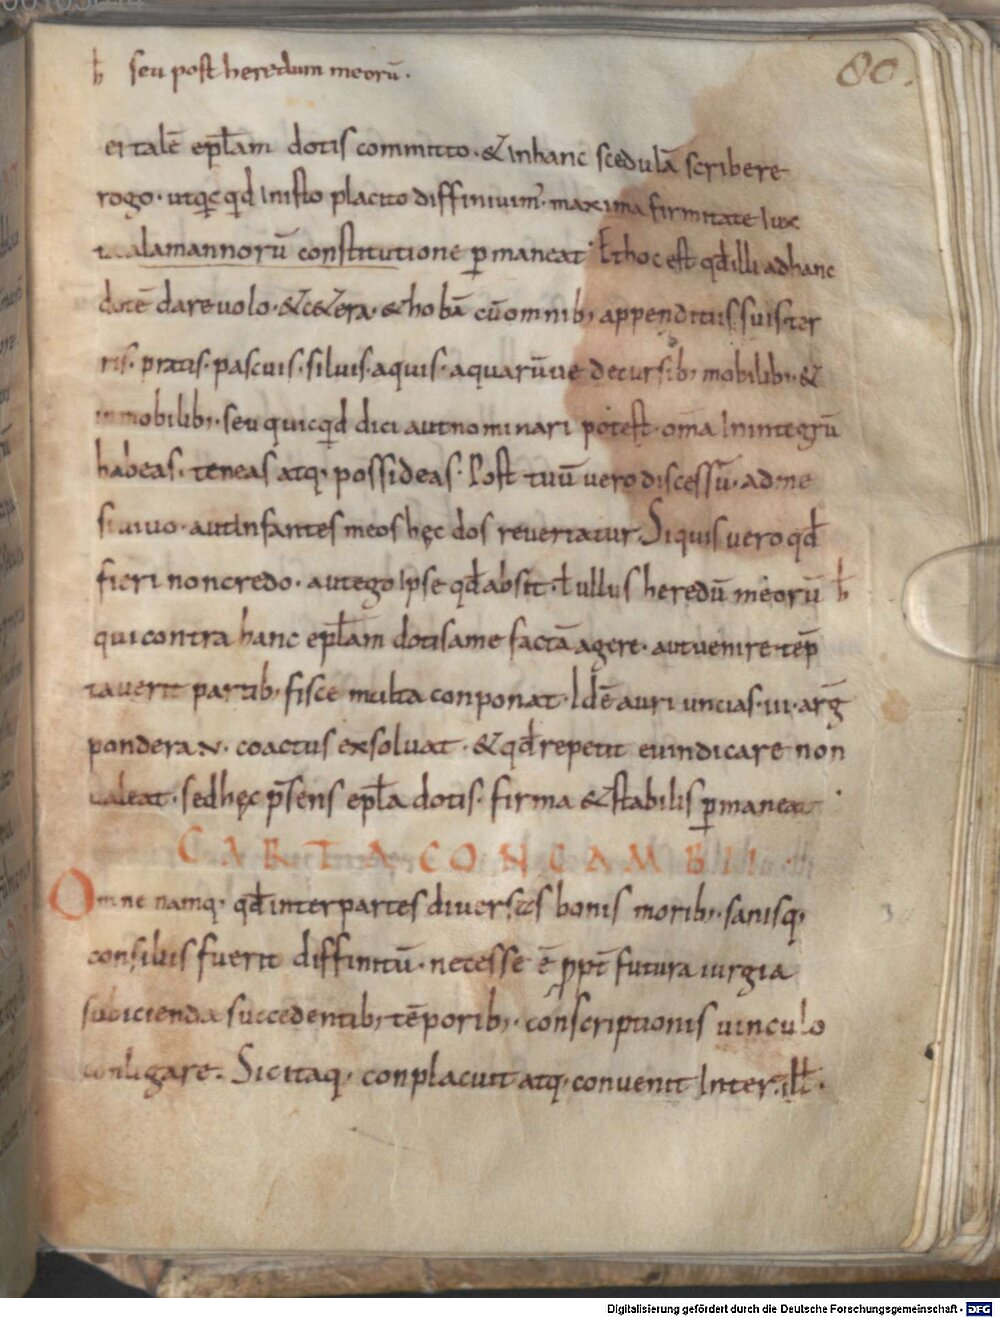 ƕ seu post heredum meorū.
80.
ei talē epl̄am dotis committo· & in hanc scedulā scribere
rogo· ut qcqd in isto placito diffinivim̄· maxima firmitate iux
ta alamannorū constitutione p̱maneat· Et hoc est qđ illi ad hanc
dotē dare uolo· & cetera· & hobā cū omnib; appenditiis suis ter
ris· pratis· pascuis· siluis· aquis· aquarūue decursib; mobilib;· &
inmobilib;· seu quicqd dici aut nominari potest· om̄a in integrū
habeas· teneas atq; possideas· Post tuū uero discessū· ad me
si uiuo· aut infantes meos hęc dos reuertatur. Si quis uero qđ
fieri non credo· aut ego ipse qđ absit· ł ullus heredū meorū ƕ
qui contra hanc epl̄am dotis a me factā agere· aut uenire tēp
tauerit partib; fisce multa conponat· Idē auri uncias· iii· arḡ
pondera v· coactus exsoluat· & qđ repetit euindicare non
ualeat· sed hęc p̄sens epl̄a dotis· firma & stabilis p̱maneat·
CARTA CONCAMBII
Omne namq; qđ inter partes diuersas bonis morib;· sanisq;
consiliis fuerit diffinitū· necesse ē ꝓpt̄ futura iurgia
subicienda succedentib; tēporib;· conscriptionis uinculo
conligare. Sic itaq; conplacuit atq; conuenit inter· ill̄·
Digitalisierung gefördert durch die Deutsche Forschungsgemeinschaft - DFG